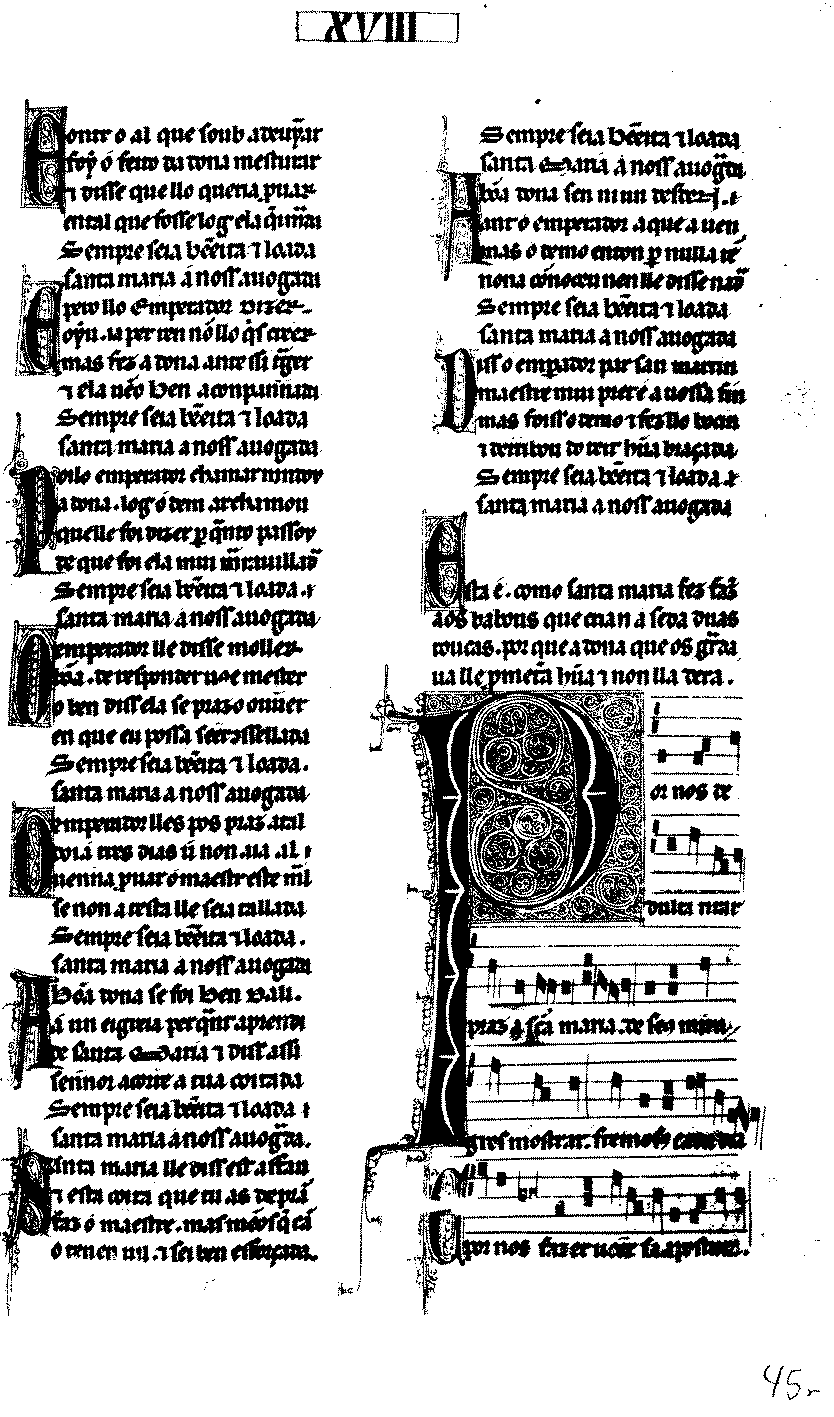 XVIII
Contr o al que soub adeuỹar
foy o feito da dona mesturar
⁊ disse quello queria puar
en tal que fosse log ela q̃imada
Sempre seia bẽeita ⁊ loada
santa maria a noss auogada
pero llo Emperador dizer
oyu. ia per ren nõ llo q̃s creer
mas fez a dona ante ssi
⁊ ela uẽo ben aconpannada
Sempre seia bẽeita ⁊ loada
santa maria a noss auogada
Poilo emperador chamar mandou
a dona. log o dem
quelle foi dizer ꝑ q̃nto passou
de que foi ela mui m̃auillad̃
Sempre seia bẽeita ⁊ loada.
santa maria a noss auogada
O emperador lle disse moller
bõa. de responder uos e mester
o ben diss ela se prazo ouuer
en que eu possa seer
Sempre seia bẽeita ⁊ loada.
santa maria a noss auogada
O emperador lles pos praz atal
doia tres dias u non aia al
uenna puar o maestr este mal
se non a testa lle seia tallada
Sempre seia bẽeita ⁊ loada.
santa maria a noss auogada
A bõa dona se foi ben dali.
a un eigreia per q̃nt aprendi
de santa Maria ⁊ diss assi
sennor acorre a tua coitada
Sempre seia bẽeita ⁊ loada
santa maria a noss auogada.
Santa maria lle diss est affan
⁊ esta coita que tu as de prã
faz o maestre. mas mẽos q̃ cã
o tenen uil. ⁊ sei ben esforçada.
Sempre seia bẽeita ⁊ loada
santa Maria a noss auogada
A bõa dona sen niun desden
ant o emperador a que a uen
mas o demo enton ꝑ nulla rẽ
nona cõnoceu nen lle disse nad̃
Sempre seia bẽeita ⁊ loada
santa maria a noss auogada
Diss o empador par san martin
maestre mui pret e a uossa fin
mas foiss o demo ⁊ fez llo bocin
⁊ derribou do teit hũa braçada
Sempre seia bẽeita ⁊ loada
santa maria a noss auogada
Esta é. como santa maria fez faz̃
aos babous que crian a seda duas
toucas. por que a dona que os gr̃da
ua lle pmet̃a hũa ⁊ non lla dera.
Por nos de
dulta tirar
praz a sc̃a maria. de seus mira
gres mostrar. fremosos cada dia
E por nos fazer ueer sa apostura.
45r